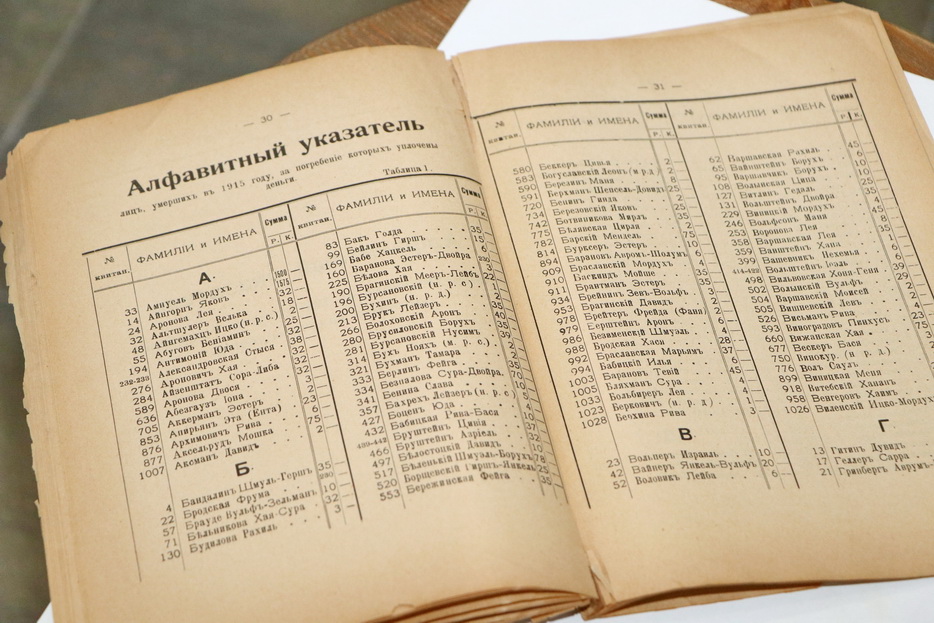 — 30 —
Алфавитный указатель
лицъ, умершихъ въ 1915 году, за погребеніе которыхъ уплочены
деньги.
Таблица 1.
№ квитан. ФАМИЛІИ и ИМЕНА Сумма Р. К.
А.
33 Амнуель Мордухъ
14 Айнгорнъ Яковъ
24 Аронова Лея
32 Альтшулеръ Велька
48 Айнгемахцъ Ицко (н. р. с.)
55 Абуговъ Беніаминъ
194 Антимоній Юда
232-233 Александровская Стыся
276 Ароновичъ Хая
284 Айзенштатъ Сора-Либа
589 Аронова Двося
636 Абезгаузъ Іона
705 Аккерманъ Эстеръ
853 Анирьянъ Эта (Ента)
876 Архимовичъ Рива
877 Аксельрудъ Мошка
1007 Аксманъ Давидъ
Б.
4 Бандалинъ Шмуль-Гершъ 35
22 Бродская Фрума
57 Брауде Вульфъ-Зельманъ 10
71 Бѣльникова Хая-Сура 32
130 Будилова Рахиль 3
№ квитан. ФАМИЛІИ и ИМЕНА Сумма
83 Бакъ Голда 35
99 Бейлинъ Гиршъ 15
169 Бабе Ханкель 6
225 Баранова Эстеръ-Двойра
160 Бѣлова Хая
190 Брагинскій Мееръ-Лейбъ
196 Бурсановскій (н. р. с.)
200 Бухинъ (н. р. д.)
213 Брукъ Лейзеръ
266 Волоховскій Аронъ
280 Брусиловскій Борухъ
281 Брусиловскій Нусимъ
314 Бухъ Ноахъ (м. р. с.)
321 Бухманъ Тамара
333 Берлинъ Фейга
334 Безпалова Сура-Двойра
341 Бенина Слава
357 Бахрехъ Лейзеръ (н. р. с.)
427 Боценъ Юда
432 Бабицкая Рива-Бася
439-442 Бруштейнъ Цивія
466 Бруштейнъ Азріель
497 Бѣлостоцкій Давидъ
517 Бѣленькій Шмуэль-Борухъ
520 Борщевскій Гиршъ-Янкель
553 Бережинская Фейга
— 31 —
№ квитан. ФАМИЛІИ и ИМЕНА Сумма Р. К.
580 Беккеръ Цивья 2
583 Богуславскій Леонъ (н р. д
590 Березинъ Маня 8
591 Берманъ Шепсель-Довидъ 25
720 Бенинъ Гинда 2
734 Березовскій Яковъ 25
742 Ботвиникова Мирлъ 3
775 Бѣлянская Цирля
782 Барскій Мендель 75
814 Буркесъ Эстеръ 10
894 Барановъ Авромъ-Шолумъ
904 Браславскій Мордухъ 4
909 Баскиндъ Мойше
910 Брантманъ Эстеръ 35
911 Брейнинъ Зевъ-Вольфъ 3
953 Брагинскій Давидъ
978 Брейтеръ Фрейда (Фаня) 2
979 Берштейнъ Аронъ 6
986 Безыменскій Шмуль
988 Бродская Хася 28
992 Браславская Марьямъ 37
994 Бабицкій Илья 6
1003 Барановъ Теній 45
1005 Бляхманъ Сура 4
1033 Больбиреръ Лея 4
1023 Берковичъ (н. р. д.) 1
1028 Бенхина Рива 3
В.
23 Вольперъ Израиль 10
42 Вайнеръ Янкель-Вульфъ 20
52 Воловикъ Лейба 6
№ квитан. ФАМИЛІИ и ИМЕНА Сумма Р. К.
62 Варшавская Рахиль 45
65 Вайнштейнъ Борухъ 6
95 Варшавчикъ Борухъ 10
108 Волынская Ципа 25
127 Витлинъ Гедаль 35
131 Вольштейнъ Двойра
229 Виницкій Мордухъ
246 Вольфсонъ Маня
253 Воронова Лея
358 Варшавская Лея
359 Ванштейнъ Хана
399 Вашевникъ Пехемья
414-422 Вольштейнъ Іоаль
498 Вильвовская Хоня-Геня
502 Волынскій Вульфъ
504 Варшавскій Моисей
505 Вишневскій Лейъ
526 Висманъ Рива
593 Виноградовъ Пинхусъ
660 Вижанская Хая
677 Вескеръ Бася
750 Винокур. (н р. д.)
776 Волъ Саулъ
899 Виницкая Меня
918 Витебскій Хаимъ
958 Венгеровъ Хаимъ
1026 Виленскій Ицко-Мордухъ
Г.
13 Гитинъ Дувидъ
17 Геллеръ Сарра
17 Гринбергъ Аврумъ-